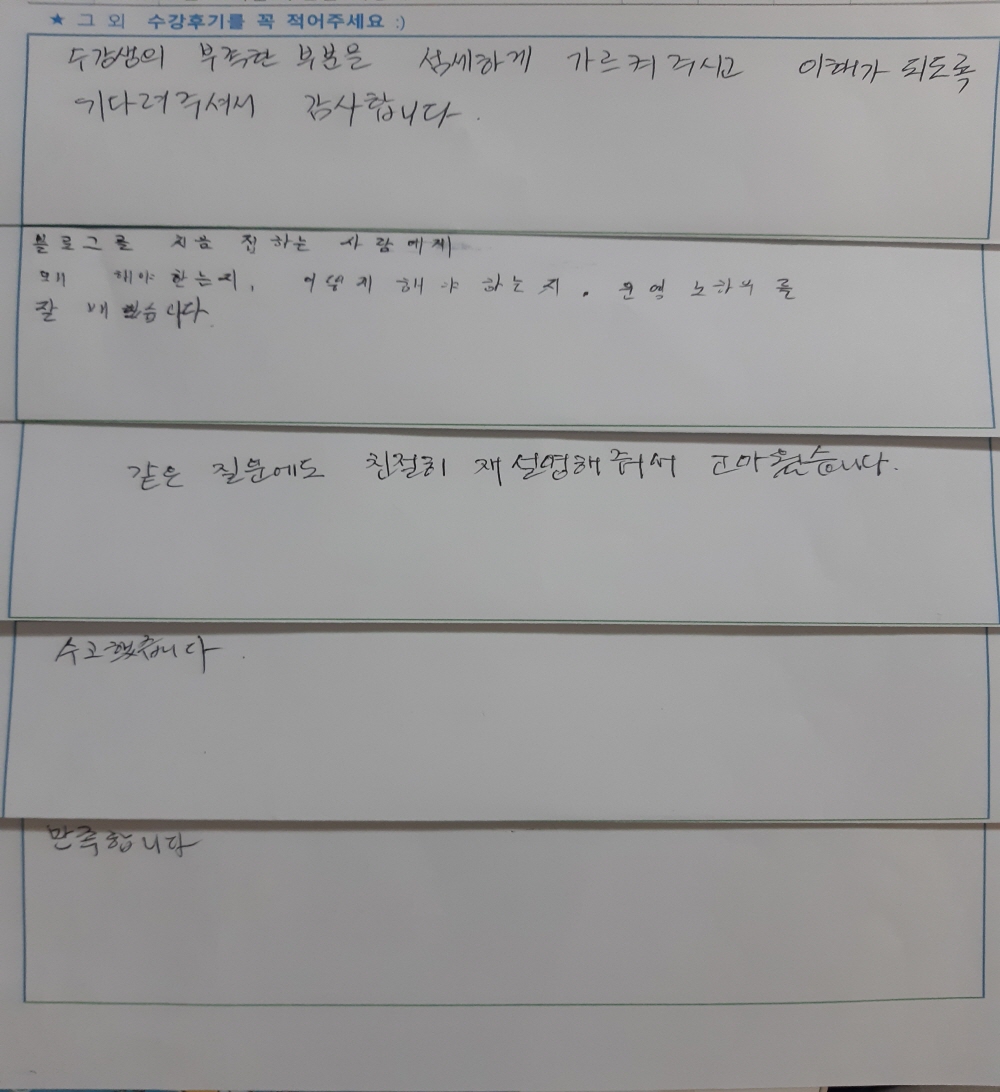 ★ 그 외 수강후기를 꼭 적어주세요 :)
수강생의 부족한 부분을 섬세하게 가르켜 주시고 이해가 되도록
기다려주셔서 감사합니다.
블로그를 처음 접하는 사람에게
왜 해야 한는지, 어떻게 해야 하는지. 운영 노하우를
잘 배웠습니다.
같은 질문에도 친절히 재설명해줘서 고마웠습니다.
수고했습니다.
만족합니다